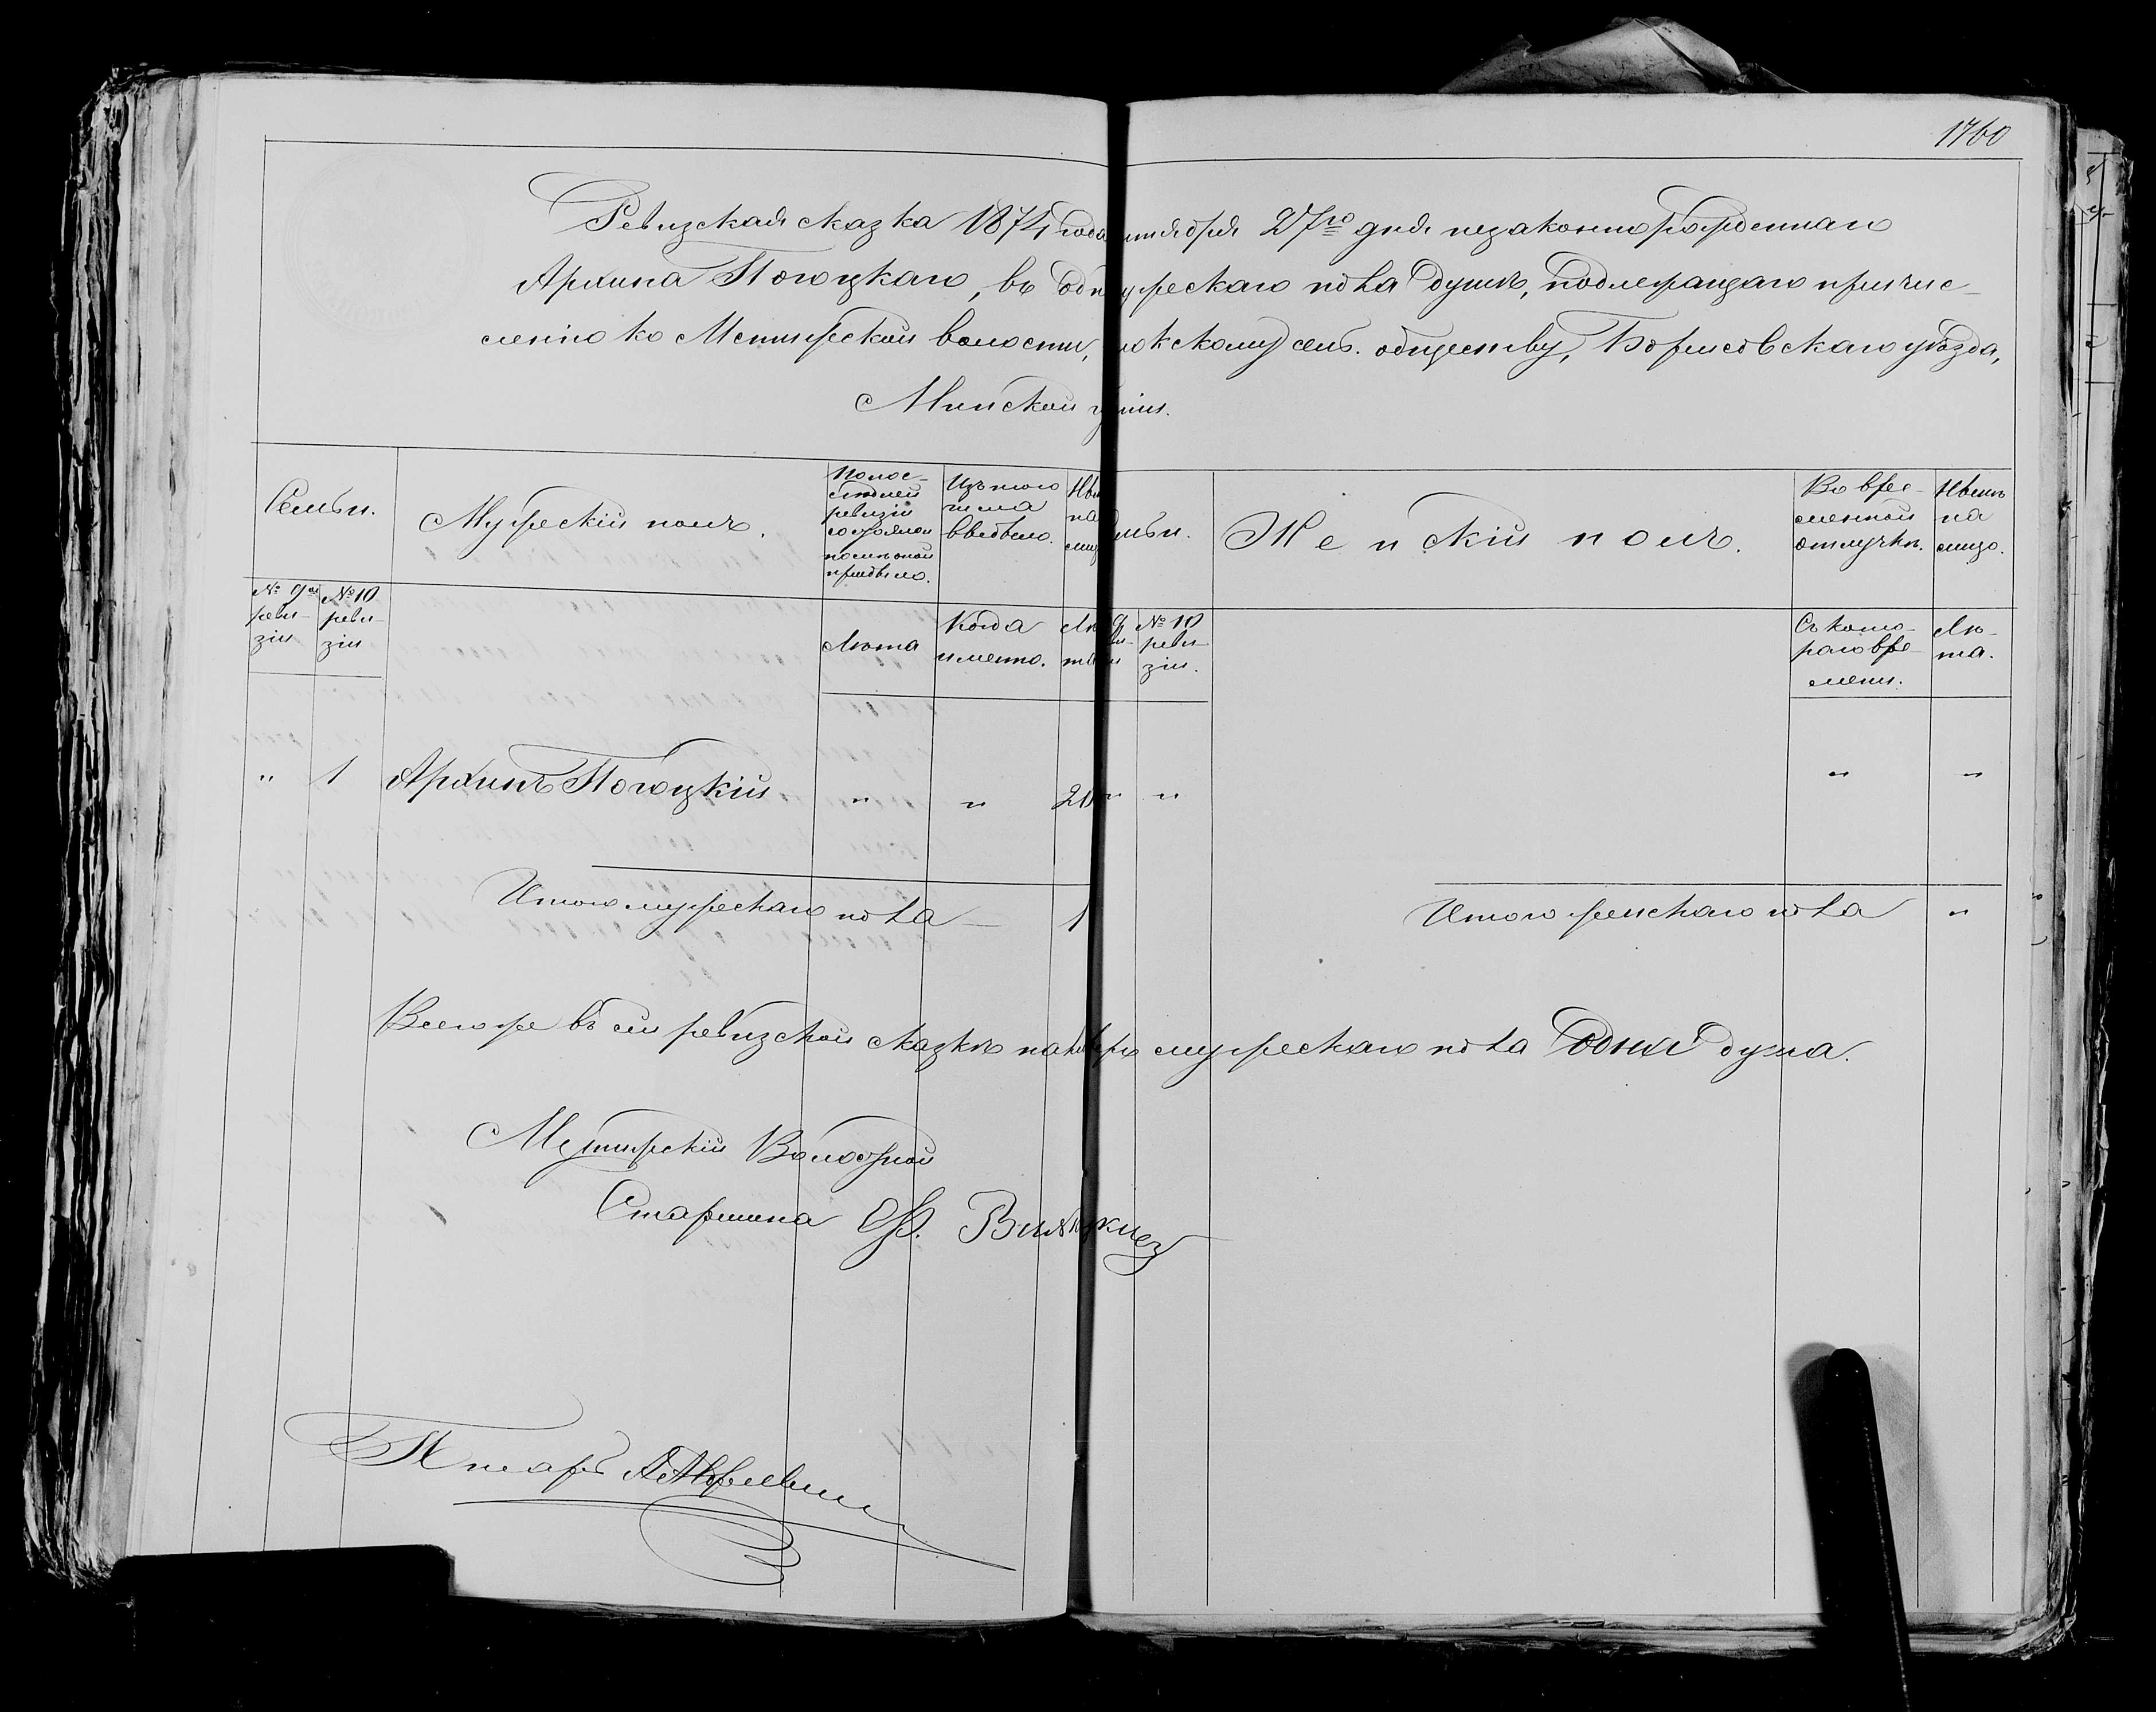 1760
Ревизская сказка 1874 года тября 27го дня незаконнорожденнаго
Архипа Погоцкаго, въ одн мужескаго пола душѣ, подлежащаго причис-
ленію ко Мстижской волости, скому сел. обществу, Борисовскаго уѣзда,
Минской губніи.
Семьи. Мужескій полъ. По пос-лѣдней ревизіи состояло и послѣ оной прибыло. Изъ того числа выбыло. Нынѣ на лицо Семьи. Женскій полъ. Во вре-менной отлучкѣ. Нынѣ на лицо.
№ 9й реви-зіи № 10 реви-зіи Лѣта Когда именно. Лѣ-та 9 реви-зіи № 10 реви-зіи. Съ кото-раго вре-мени. Лѣ-та.
" 1 Архипъ Погоцкій " " 20 " " " "
Итого мужескаго пола — 1 Итого женскаго пола "
Всего же въ сей ревизской сказкѣ мужескаго пола Одна душа.
Мстижскій Волостной
Старшина
Писарь